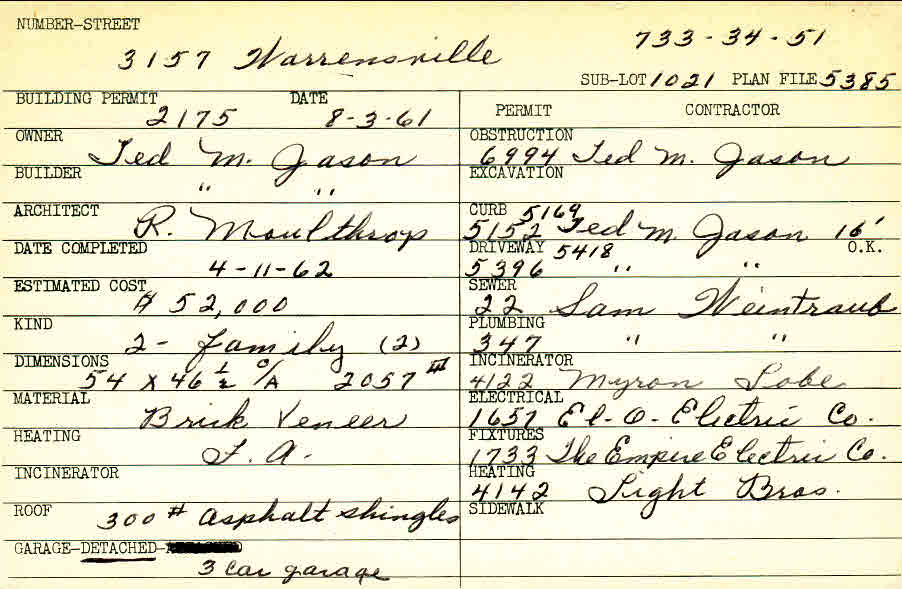 NUMBER-STREET
3157 Warrensville
733-34-51
SUB-LOT 1021 PLAN FILE 5385
BUILDING PERMIT DATE
2175 8-3-61
OWNER
Ted M. Jason
BUILDER
" "
ARCHITECT
R. Moulthrop
DATE COMPLETED
4-11-62
ESTIMATED COST
$ 52,000
KIND
2- family (2)
DIMENSIONS
54 x 46 1/2 C/A 2057
MATERIAL
Brick Veneer
HEATING
F. A.
INCINERATOR
ROOF
300 # asphalt shingles
GARAGE-DETACHED-
3 car garage
PERMIT CONTRACTOR
OBSTRUCTION
6994 Ted M. Jason
EXCAVATION
CURB 5169
5152 Ted M. Jason 16'
O.K.
DRIVEWAY 5418
5396 " "
SEWER
22 Sam Weintraub
PLUMBING
347 " "
INCINERATOR
4122 Myron Lobe
ELECTRICAL
1657 El-O-Electric Co.
FIXTURES
1733 The Empire Electric Co.
HEATING
4142 Light Bros.
SIDEWALK